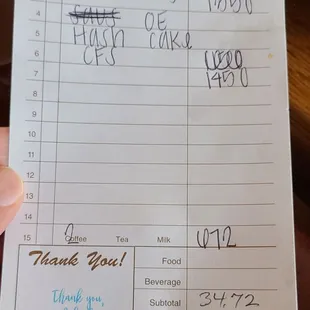 1350
4 OE
5 Hash cake
6 CFS
7 1450
8
9
10
11
12
13
14
15 2 Coffee Tea Milk 672
Thank You! Food
Beverage
Thank you, Subtotal 34.72